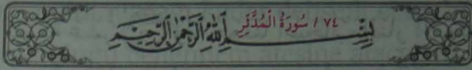 ٧٤ / سُورَةُ الْمُدَّثِّرِ
بِسْمِ اللَّهِ الرَّحْمَٰنِ الرَّحِيمِ